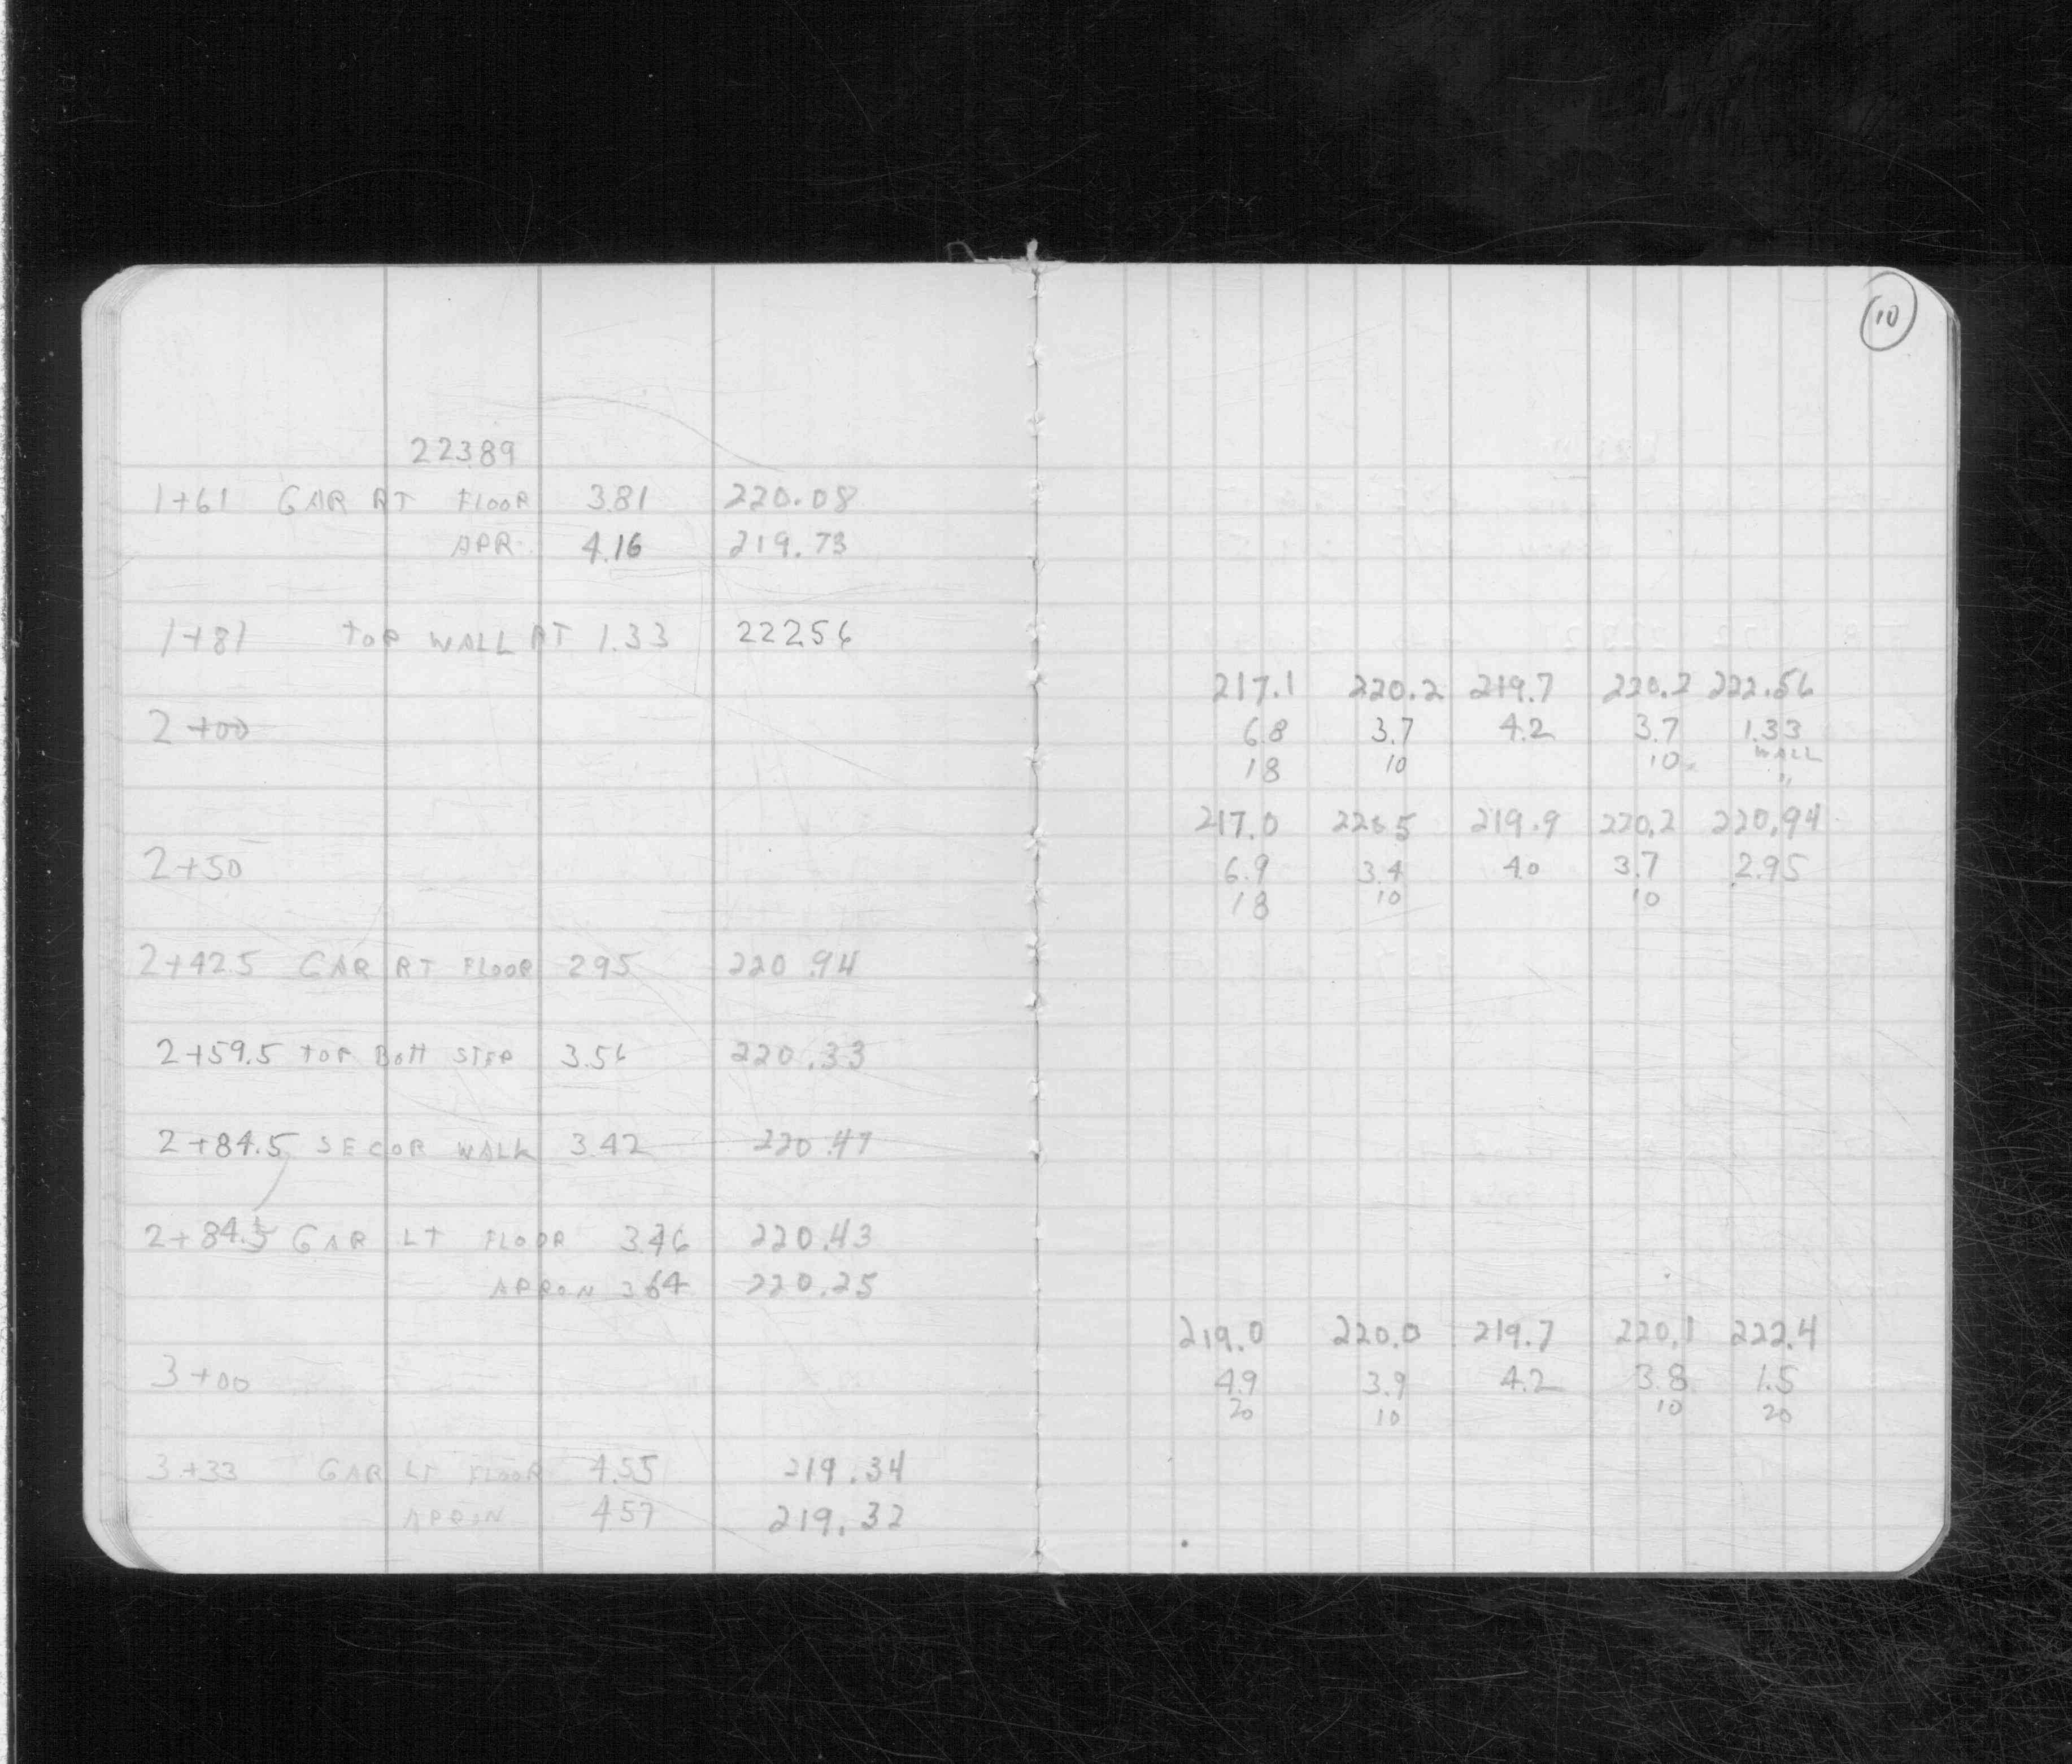 22389
1+61 GAR RT FLOOR 3.81 220.08
APR. 4.16 219.73
1+81 TOP WALL RT 1.33 22256
2+00
2+50
2+42.5 GAR RT FLOOR 2.95 220.94
2+59.5 TOP BOTT STEP 3.56 220.33
2+84.5 SECOR WALK 3.42 220.47
2+84.5 GAR LT FLOOR 3.46 220.43
APRON 3.64 220.25
3+00
3+33 GAR LT FLOOR 4.55 219.34
APRON 4.57 219.32
10
217.1 220.2 219.7 220.2 222.56
6.8 3.7 4.2 3.7 1.33
18 10 10 WALL
11
217.0 220.5 219.9 220.2 220.94
6.9 3.4 4.0 3.7 2.95
18 10 10
219.0 220.0 219.7 220.1 222.4
4.9 3.9 4.2 3.8 1.5
20 10 10 20